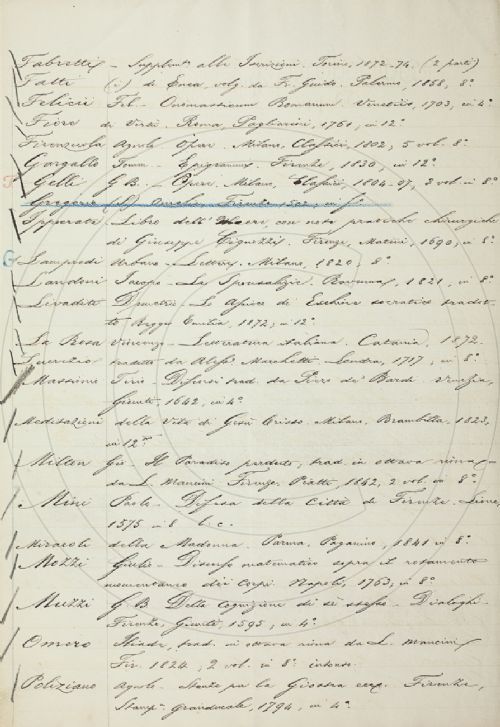 Fabretti - Supplemto alle Iscrizioni. Torino, 1872-74. (2 parti)
Fatti (i) di Enea, volg. da Fr. Guido. Palermo, 1858, 8°
Felicii Fil. - Onomasticum Romanum. Venetiis, 1703, in 4°
Fiore di Virtù. Roma, Pagliarini, 1751, in 12°
Firenzuola Agnolo Opere. Milano, Classici, 1802, 5 vol. 8°
Gargallo Tomm. - Epigrammi. Firenze, 1830, in 12°
Gelli G B. - Opere. Milano, Classici, 1804-07, 2 vol. in 8°
Gregorio Firenze, 1502, in
Ipperate Libro dell' con note pratiche chirurgiche
di Giuseppe Cignozzi. Firenze, Matini, 1690, in 8°
Lampredi Urbano - Lettere. Milano, 1820, 8°
Landoni Jacopo - Lo Sposalizio. Ravenna, 1821, in 8°
Levadetto Demetrio - Eschine socratico tradot-
to Reggio Emilia, 1872, in 12°
La Rosa Vincenzo - Letteratura italiana. Catania, 1872.
tradotto da Aless. Marchetti. Londra, 1717, in 8°
Massimo Tirio - Discorsi trad. da Piero de' Bardi. Venezia,
Giunti, 1642, in 4°
Meditazioni della Vita di Gesù Cristo. Milano, Brambilla, 1823,
in 12°
Milton Gio - Il Paradiso perduto, trad. in ottava rima
da L. Mancini Firenze, Piatti, 1842, 2 vol. in 8°
Mini Paolo - Difesa della Città di Firenze. Lione,
1575 in 8 b. c.
Miracoli della Madonna. Parma, Paganino, 1841 in 8°
Mozzi Giulio - Discorso matematico sopra il rotamento
momentaneo dei corpi. Napoli, 1763, in 8°
Muzzi G B Della Cognizione di sè stesso - Dialoghi.
Firenze, Giunti, 1595, in 4°
Omero Iliade, trad. in ottava rima da L. Mancini
Fir. 1824, 2 vol. in 8° intonso.
Poliziano Agnolo - Stanze per la Giostra Firenze,
Stamp. Granducale, 1794, in 4°